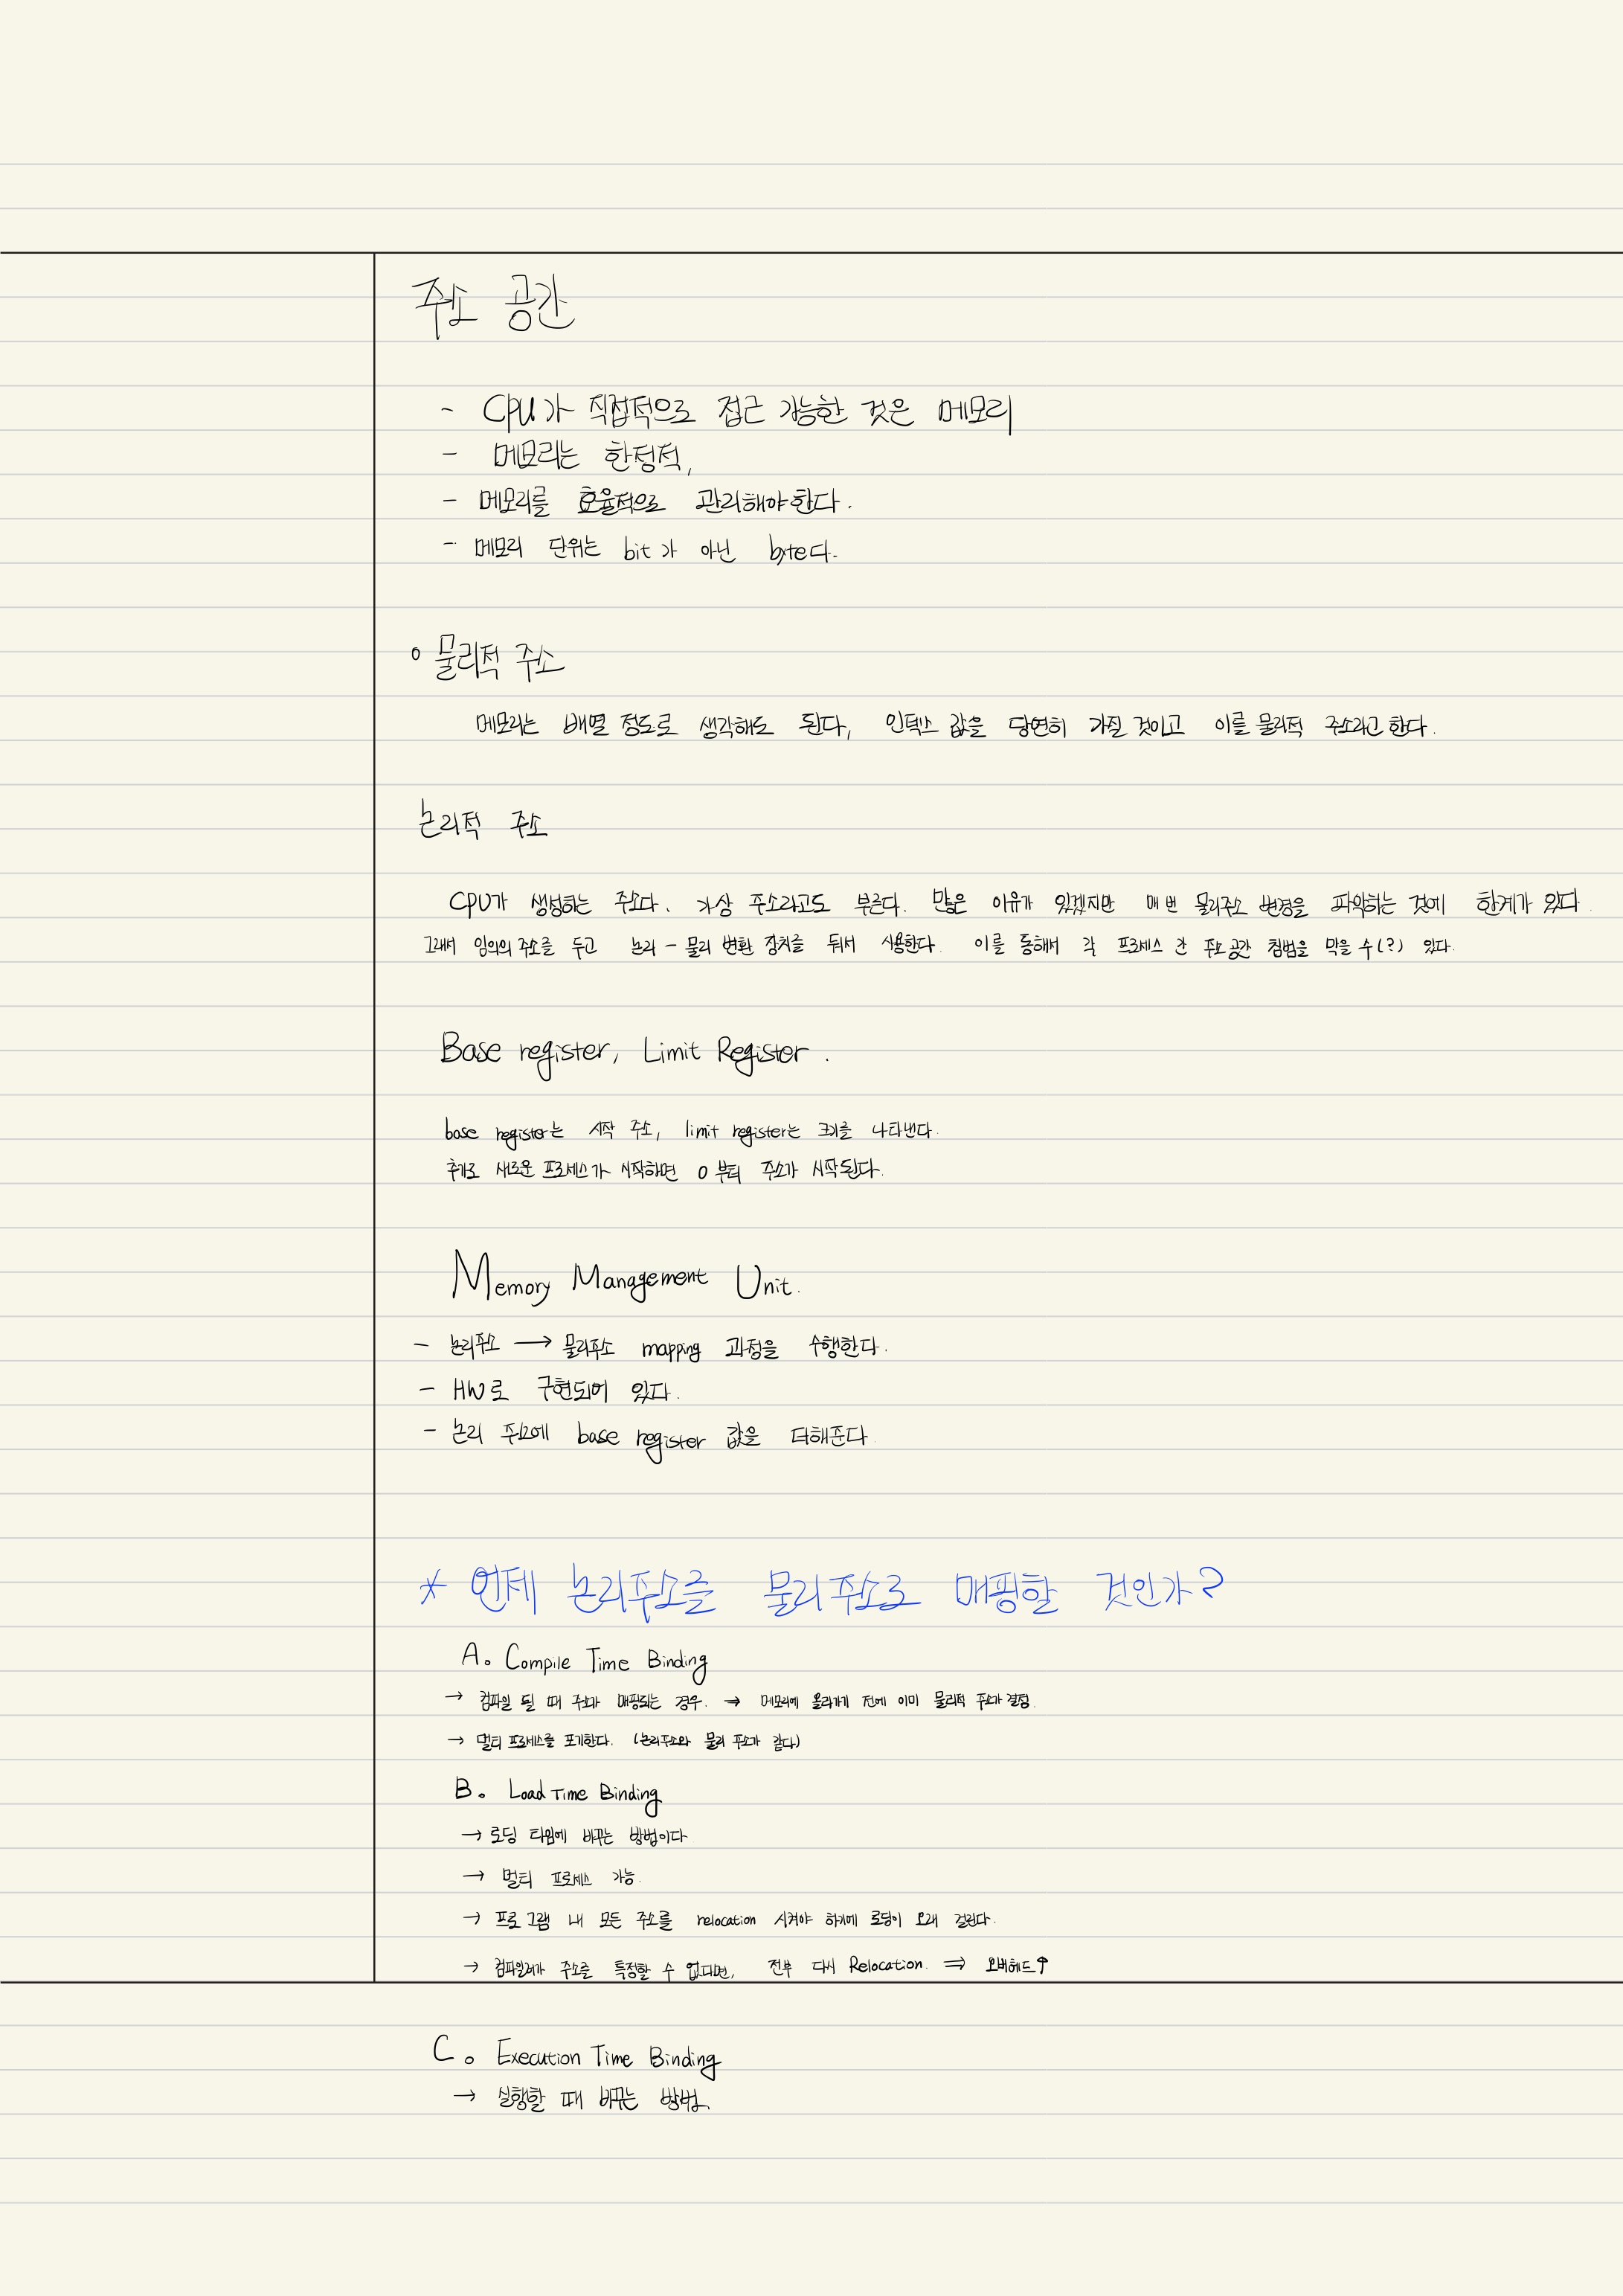 주소 공간
- CPU가 직접적으로 접근 가능한 것은 메모리
- 메모리는 한정적,
- 메모리를 효율적으로 관리해야한다.
- 메모리 단위는 bit가 아닌 byte다.
° 물리적 주소
메모리는 배열 정도로 생각해도 된다, 인덱스 값을 당연히 가질 것이고 이를 물리적 주소라고 한다.
논리적 주소
CPU가 생성하는 주소다. 가상 주소라고도 부른다. 많은 이유가 있겠지만 매번 물리주소 변경을 파악하는 것에 한계가 있다
그래서 임의의 주소를 두고 논리 - 물리 변환 장치를 둬서 사용한다. 이를 통해서 각 프로세스 간 주소공간 침범을 막을 수(?) 있다.
Base register, Limit Register.
base register는 시작 주소, limit register는 크기를 나타낸다.
추가로 새로운 프로세스가 시작하면 0부터 주소가 시작된다.
Memory Management Unit.
- 논리주소 → 물리주소 mapping 과정을 수행한다.
- HW로 구현되어 있다.
- 논리 주소에 base register 값을 더해준다
* 언제 논리주소를 물리주소로 매핑할 것인가?
A. Compile Time Binding
→ 컴파일 될 때 주소가 매핑되는 경우. → 메모리에 올라가기 전에 이미 물리적 주소가 결정.
→ 멀티 프로세스를 포기한다. (논리주소와 물리 주소가 같다)
B. Load Time Binding
→ 로딩 타임에 바꾸는 방법이다
→ 멀티 프로세스 가능.
→ 프로그램 내 모든 주소를 relocation 시켜야 하기에 로딩이 오래 걸린다.
→ 컴파일러가 주소를 특정할 수 없다면, 전부 다시 Relocation. ⇒ 오버헤드↑
C. Execution Time Binding
→ 실행할 때 바꾸는 방법.